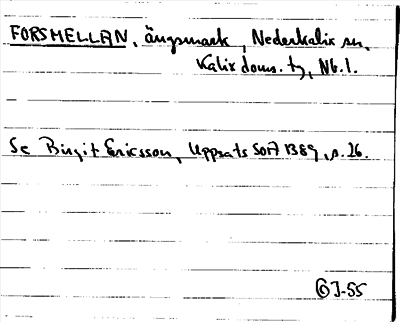 FORSMELLAN, ängsmark, Nederkalix sn,
Kalix doms. tg, Nb. l.
Se Birgit Ericsson, Uppsats SOFI 1389, s. 26.
J-55